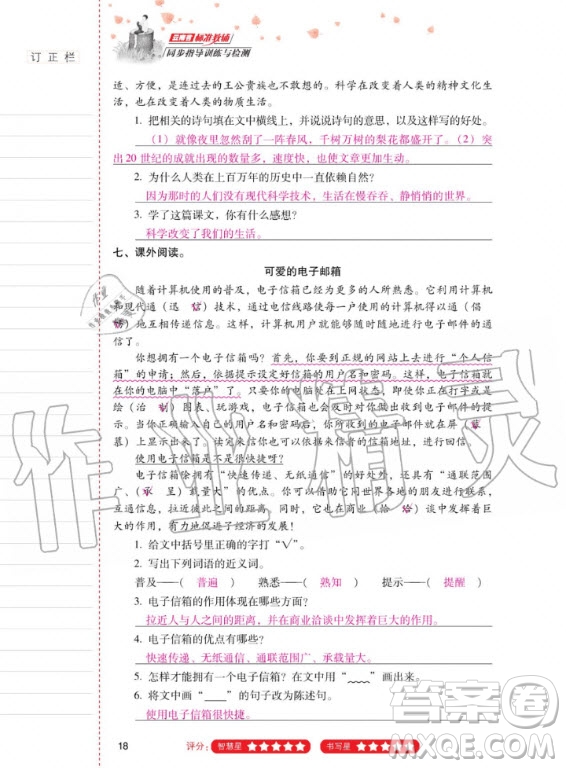 订正栏
标准教辅
同步指导训练与检测
适、方便，是连过去的王公贵族也不曾有过的。科学在改变着人类的精神文化生
活，也在改变着人类的物质生活。
1. 把相关的诗句填在文中横线上，并说说诗句的意思，以及这样写的好处。
（1）就像夜里忽然刮了一阵春风，千树万树的梨花都盛开了。（2）突
出 20 世纪的成就出现的数量多，速度快，也使文章更加生动。
2. 为什么人类在上百万年的历史中一直依赖自然？
因为那时的人们没有现代科学技术，生活在慢吞吞、静悄悄的世界。
3. 学了这篇课文，你有什么感想？
科学改变了我们的生活。
七、课外阅读。
可爱的电子邮箱
随着计算机使用的普及，电子信箱已经为更多的人所熟悉。它利用计算机
和现代通（迅 信）技术，通过电信线路使每一户使用计算机的用户得以通（倡
畅）地互相传递信息。这样，计算机用户就能够方便地进行电子邮件的通
信了。
你想拥有一个电子信箱吗？首先，你要到正规的网站上去进行“个人信
箱”的申请；然后，依据提示设定好信箱的用户名和密码。这样，电子信箱就
在你的电脑中“落户”了。只要你的电脑处在上网状态，即使你正在打字或是
绘（治 制）图表、玩游戏，电子信箱也会及时对你做出收到电子邮件的提
示。当你确认了你的用户名和密码后，你所收到的电子邮件就会在屏（幕
慕）上显示出来了。读完来信你也可以参考来信者的信箱地址，进行回信。
使用电子信箱是不是很快捷呀？
电子信箱拥有“快速传递、无纸通信”的好处外，还具有“通联范围
广、（承 呈）载量大”的优点。你可以借助它同世界各地的朋友和商业伙伴交
互信息，拉近彼此之间的距离。同时，它也在商业（恰 洽）谈中发挥着巨
大的作用，有力地促进了经济的发展！
1. 给文中括号里正确的字打“√”。
2. 写出下列词语的近义词。
普及——（ 普遍 ） 熟悉——（ 熟知 ） 提示——（ 提醒 ）
3. 电子信箱的作用体现在哪些方面？
拉近人与人之间的距离，并在商业洽谈中发挥着巨大的作用。
4. 电子信箱的优点有哪些？
快速传递、无纸通信、通联范围广、承载量大。
5. 怎样才能拥有一个电子信箱？在文中用“﹏﹏”画出来。
6. 将文中画“____”的句子改为陈述句。
使用电子信箱很快捷。
18 评分： 智慧星 ★★★★★ 书写星 ★★★★★
作业精灵
答案圈
MXQE.COM